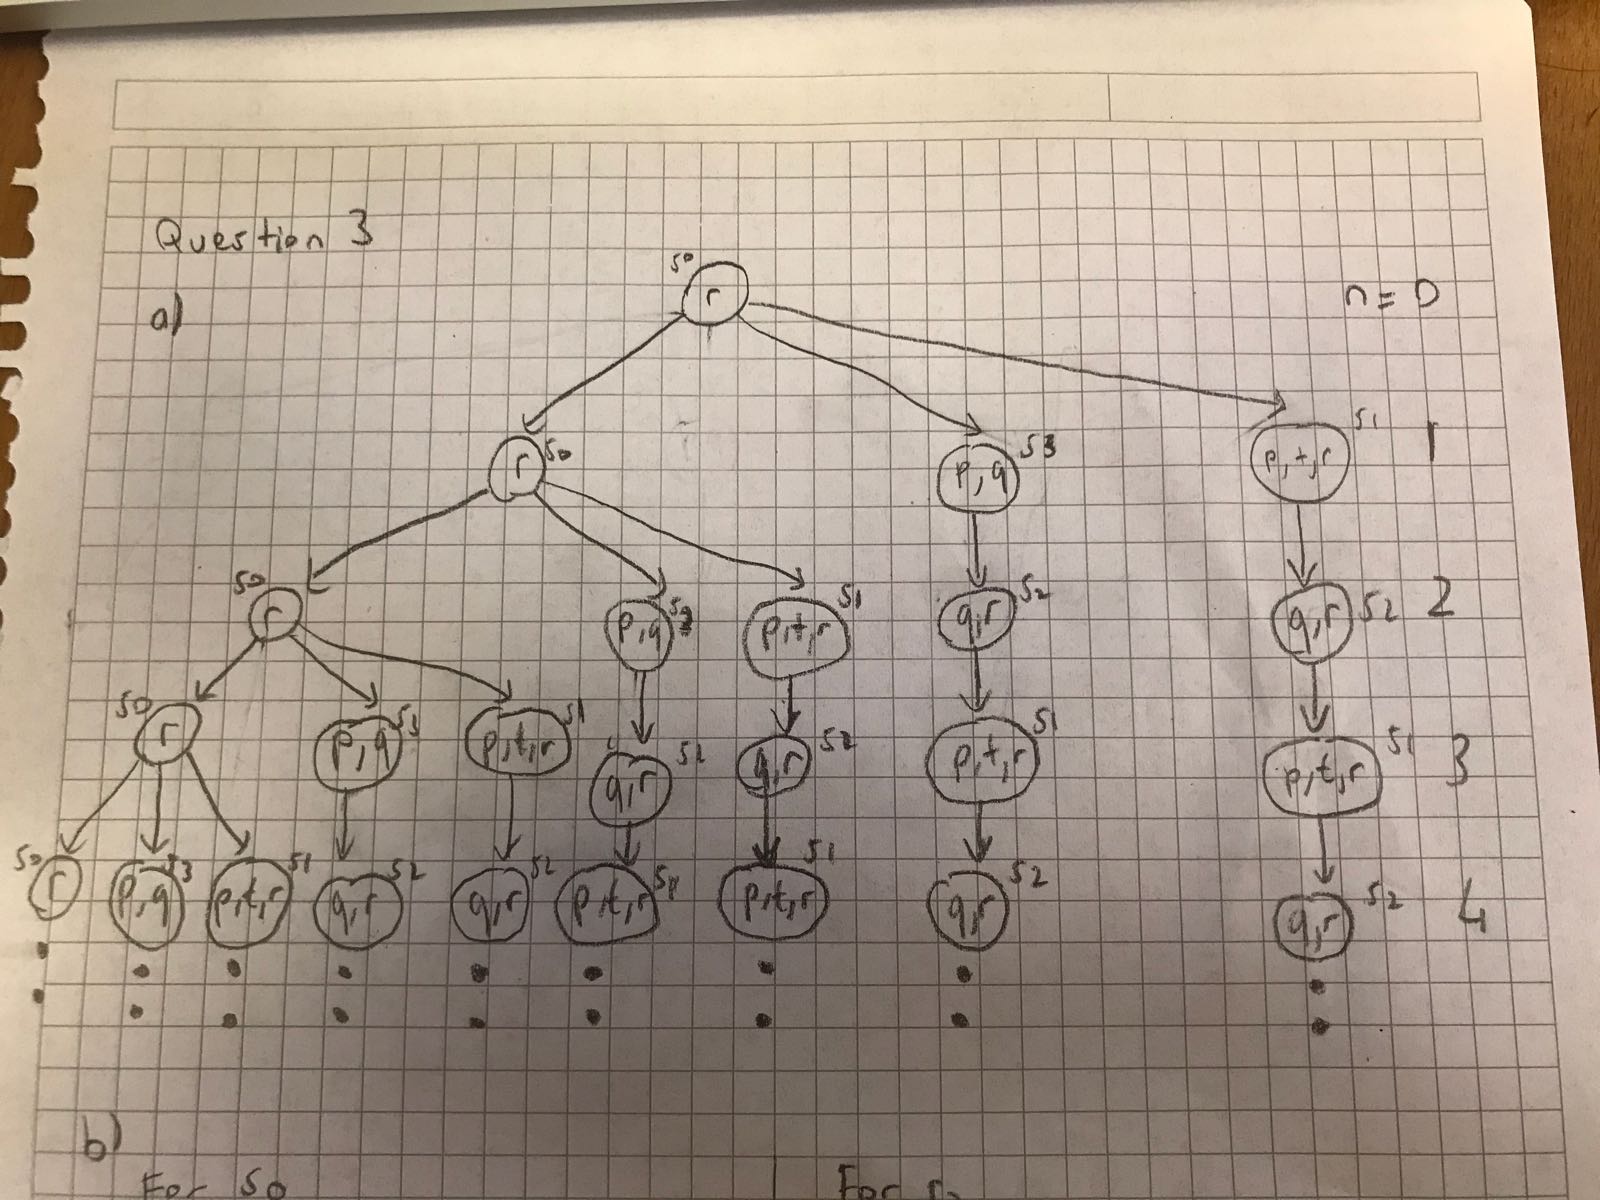 Question 3
a)
s0
r
n = 0
r s0
p,q s3
p,t,r s1
1
s0
r
p,q s3
p,t,r s1
q,r s2
q,r s2
2
s0
r
p,q s3
p,t,r s1
q,r s2
q,r s2
p,t,r s1
p,t,r s1
3
s0
r
p,q s3
p,t,r s1
q,r s2
q,r s2
p,t,r s1
p,t,r s1
q,r s2
q,r s2
4
b)
For s0
For